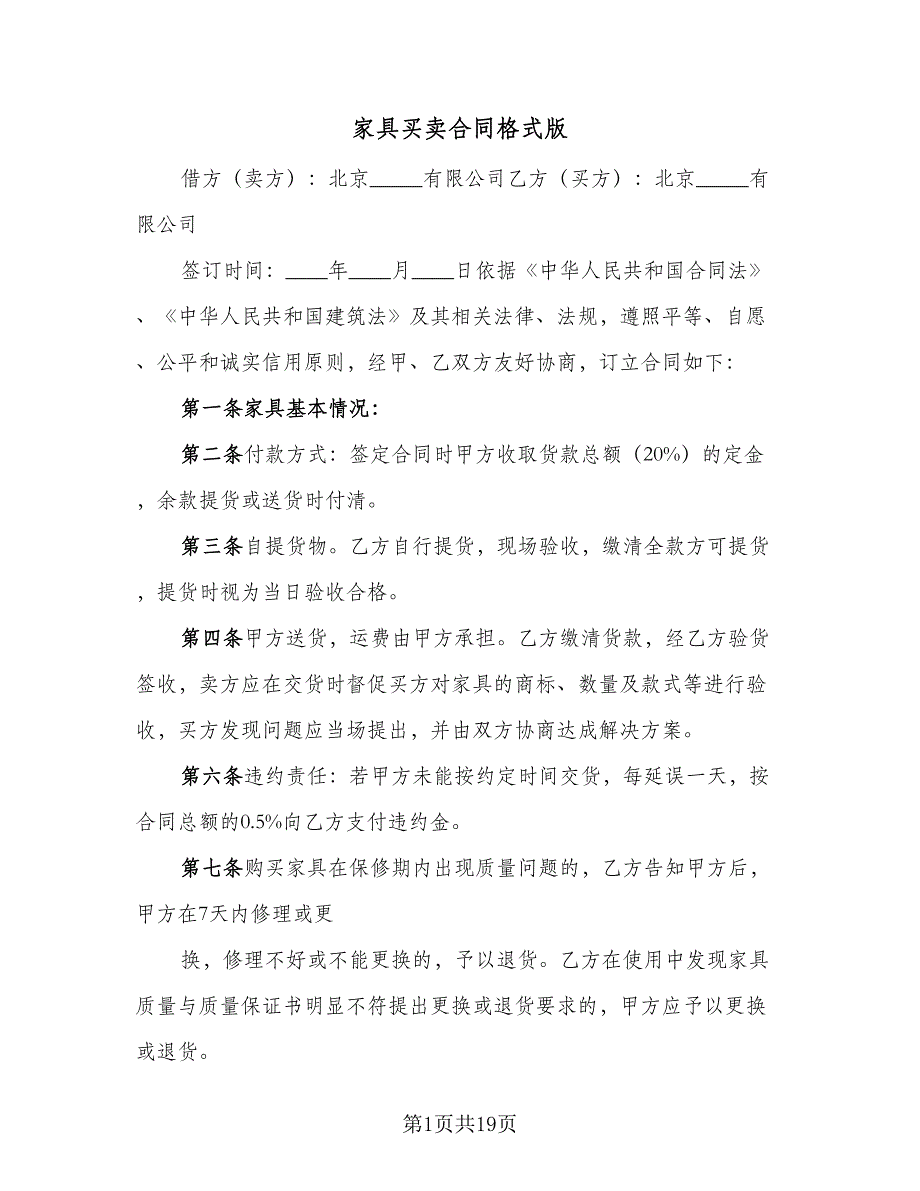 家具买卖合同格式版
借方（卖方）：北京_____有限公司乙方（买方）：北京_____有
限公司
签订时间：____年____月____日依据《中华人民共和国合同法》
、《中华人民共和国建筑法》及其相关法律、法规，遵照平等、自愿
、公平和诚实信用原则，经甲、乙双方友好协商，订立合同如下：
第一条家具基本情况：
第二条付款方式：签定合同时甲方收取货款总额（20%）的定金
，余款提货或送货时付清。
第三条自提货物。乙方自行提货，现场验收，缴清全款方可提货
，提货时视为当日验收合格。
第四条甲方送货，运费由甲方承担。乙方缴清货款，经乙方验货
签收，卖方应在交货时督促买方对家具的商标、数量及款式等进行验
收，买方发现问题应当场提出，并由双方协商达成解决方案。
第六条违约责任：若甲方未能按约定时间交货，每延误一天，按
合同总额的0.5%向乙方支付违约金。
第七条购买家具在保修期内出现质量问题的，乙方告知甲方后，
甲方在7天内修理或更
换，修理不好或不能更换的，予以退货。乙方在使用中发现家具
质量与质量保证书明显不符提出更换或退货要求的，甲方应予以更换
或退货。
第1页共19页